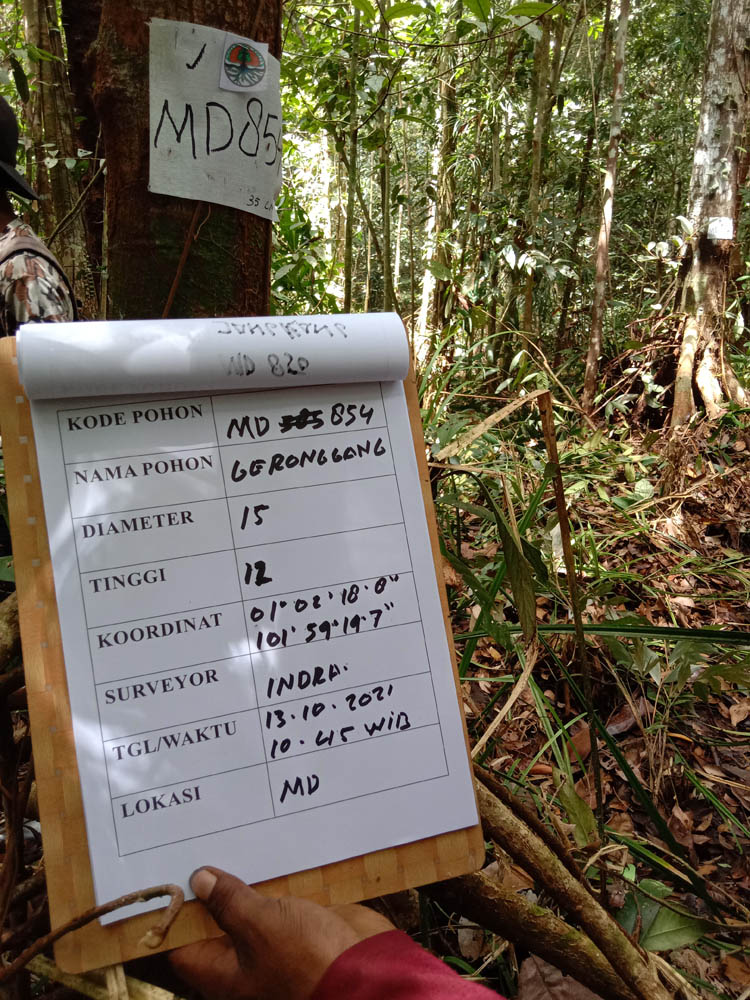 MD 85
35 C
JANGKANG
MD 820
KODE POHON MD 854
NAMA POHON GERONGGANG
DIAMETER 15
TINGGI 12
KOORDINAT 01° 02' 18.8"
101° 59' 19.7"
SURVEYOR INDRA.
TGL/WAKTU 13.10.2021
10.45 WIB
LOKASI MD